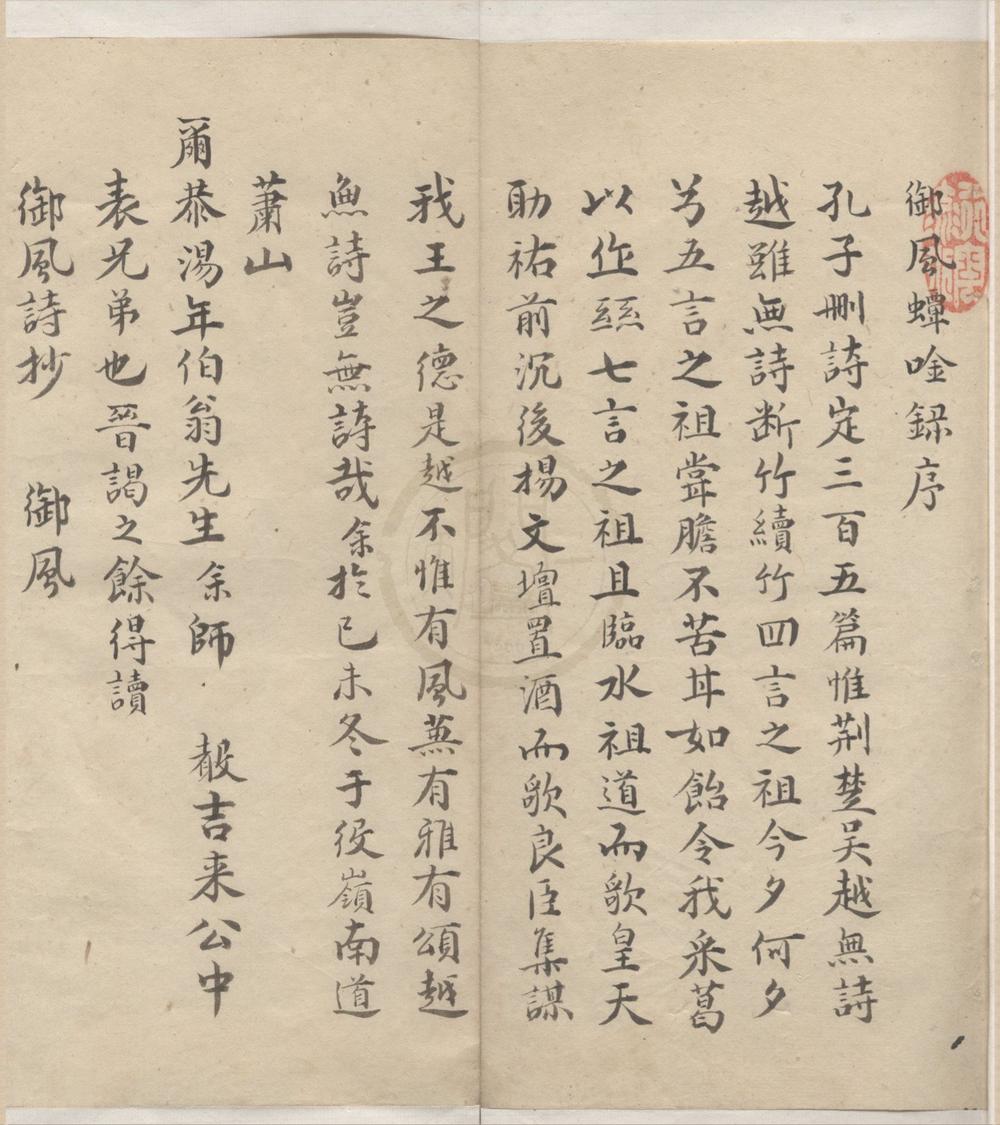 御風蟫唫錄序
孔子刪詩定三百五篇惟荆楚吴越無詩
越雖無詩断竹續竹四言之祖今夕何夕
兮五言之祖嘗膽不苦甘如飴令我采葛
以作絲七言之祖且臨水祖道而歌皇天
助祐前沉後揚文壇置酒而歌良臣集謀
我王之德是越不惟有風蒹有雅有頌越
無詩豈無詩哉余於己未冬于役嶺南道
蕭山
爾恭湯年伯翁先生余師 殽吉来公中
表兄弟也晉謁之餘得讀
御風詩抄 御風